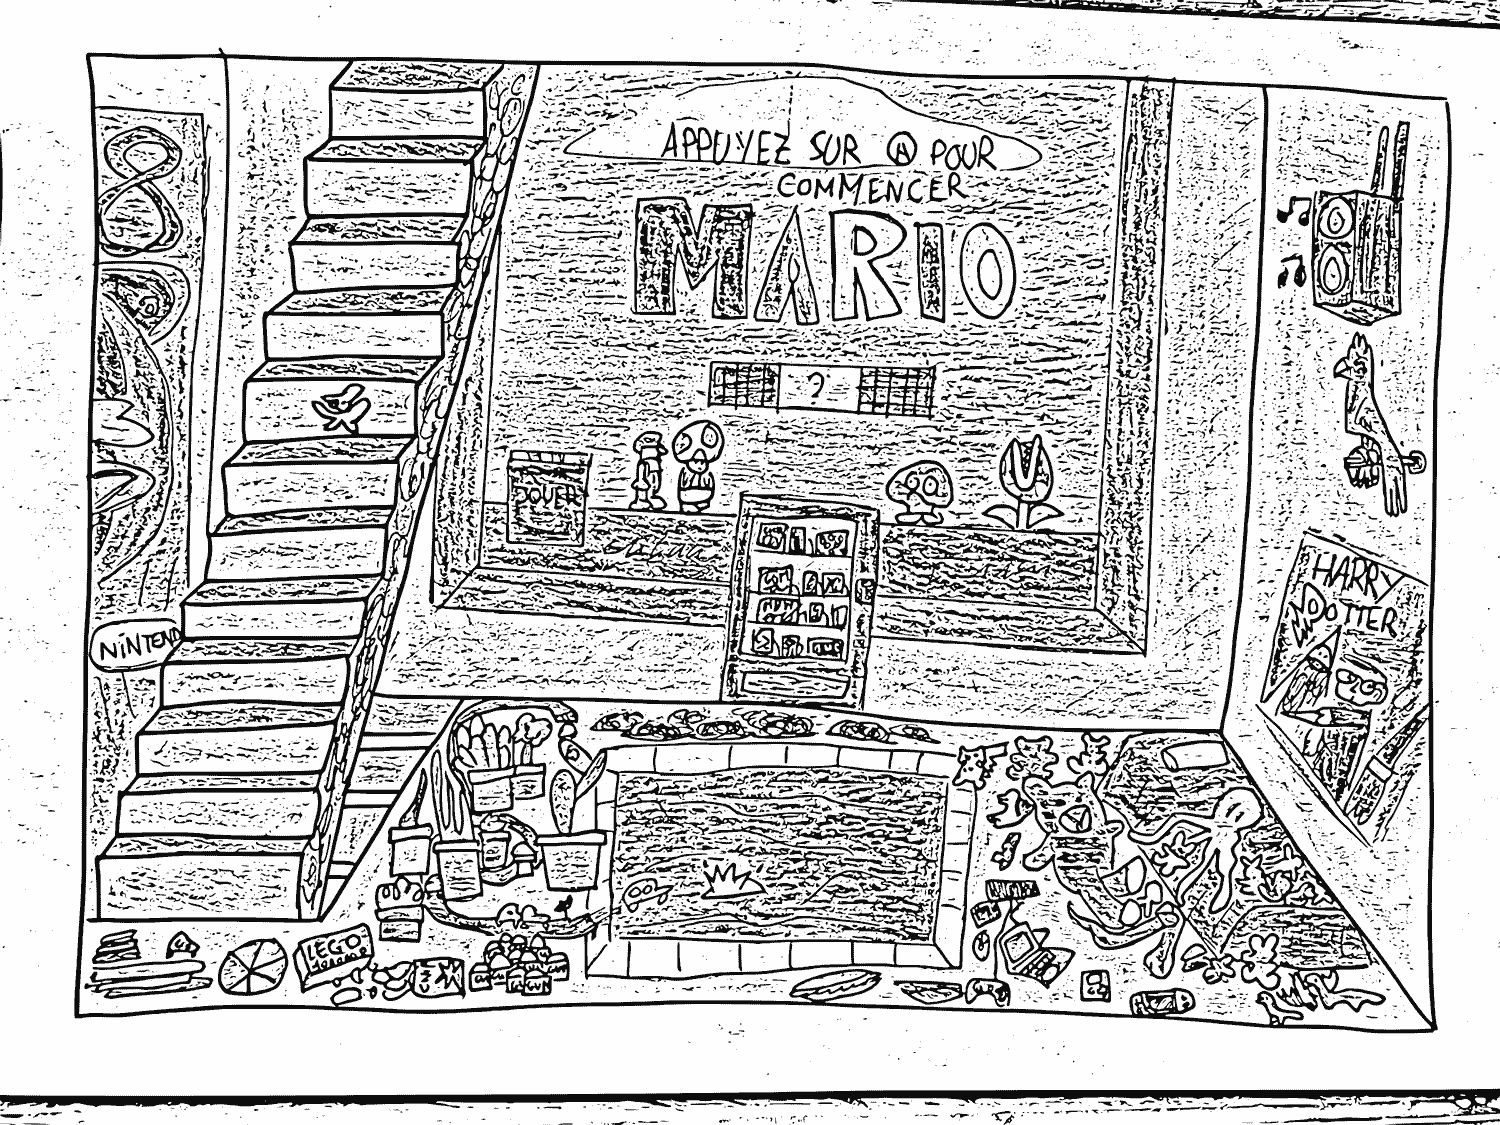 APPUYEZ SUR A POUR
COMMENCER
MARIO
?
JOUER
NINTEND
HARRY
POTTER
LEGO